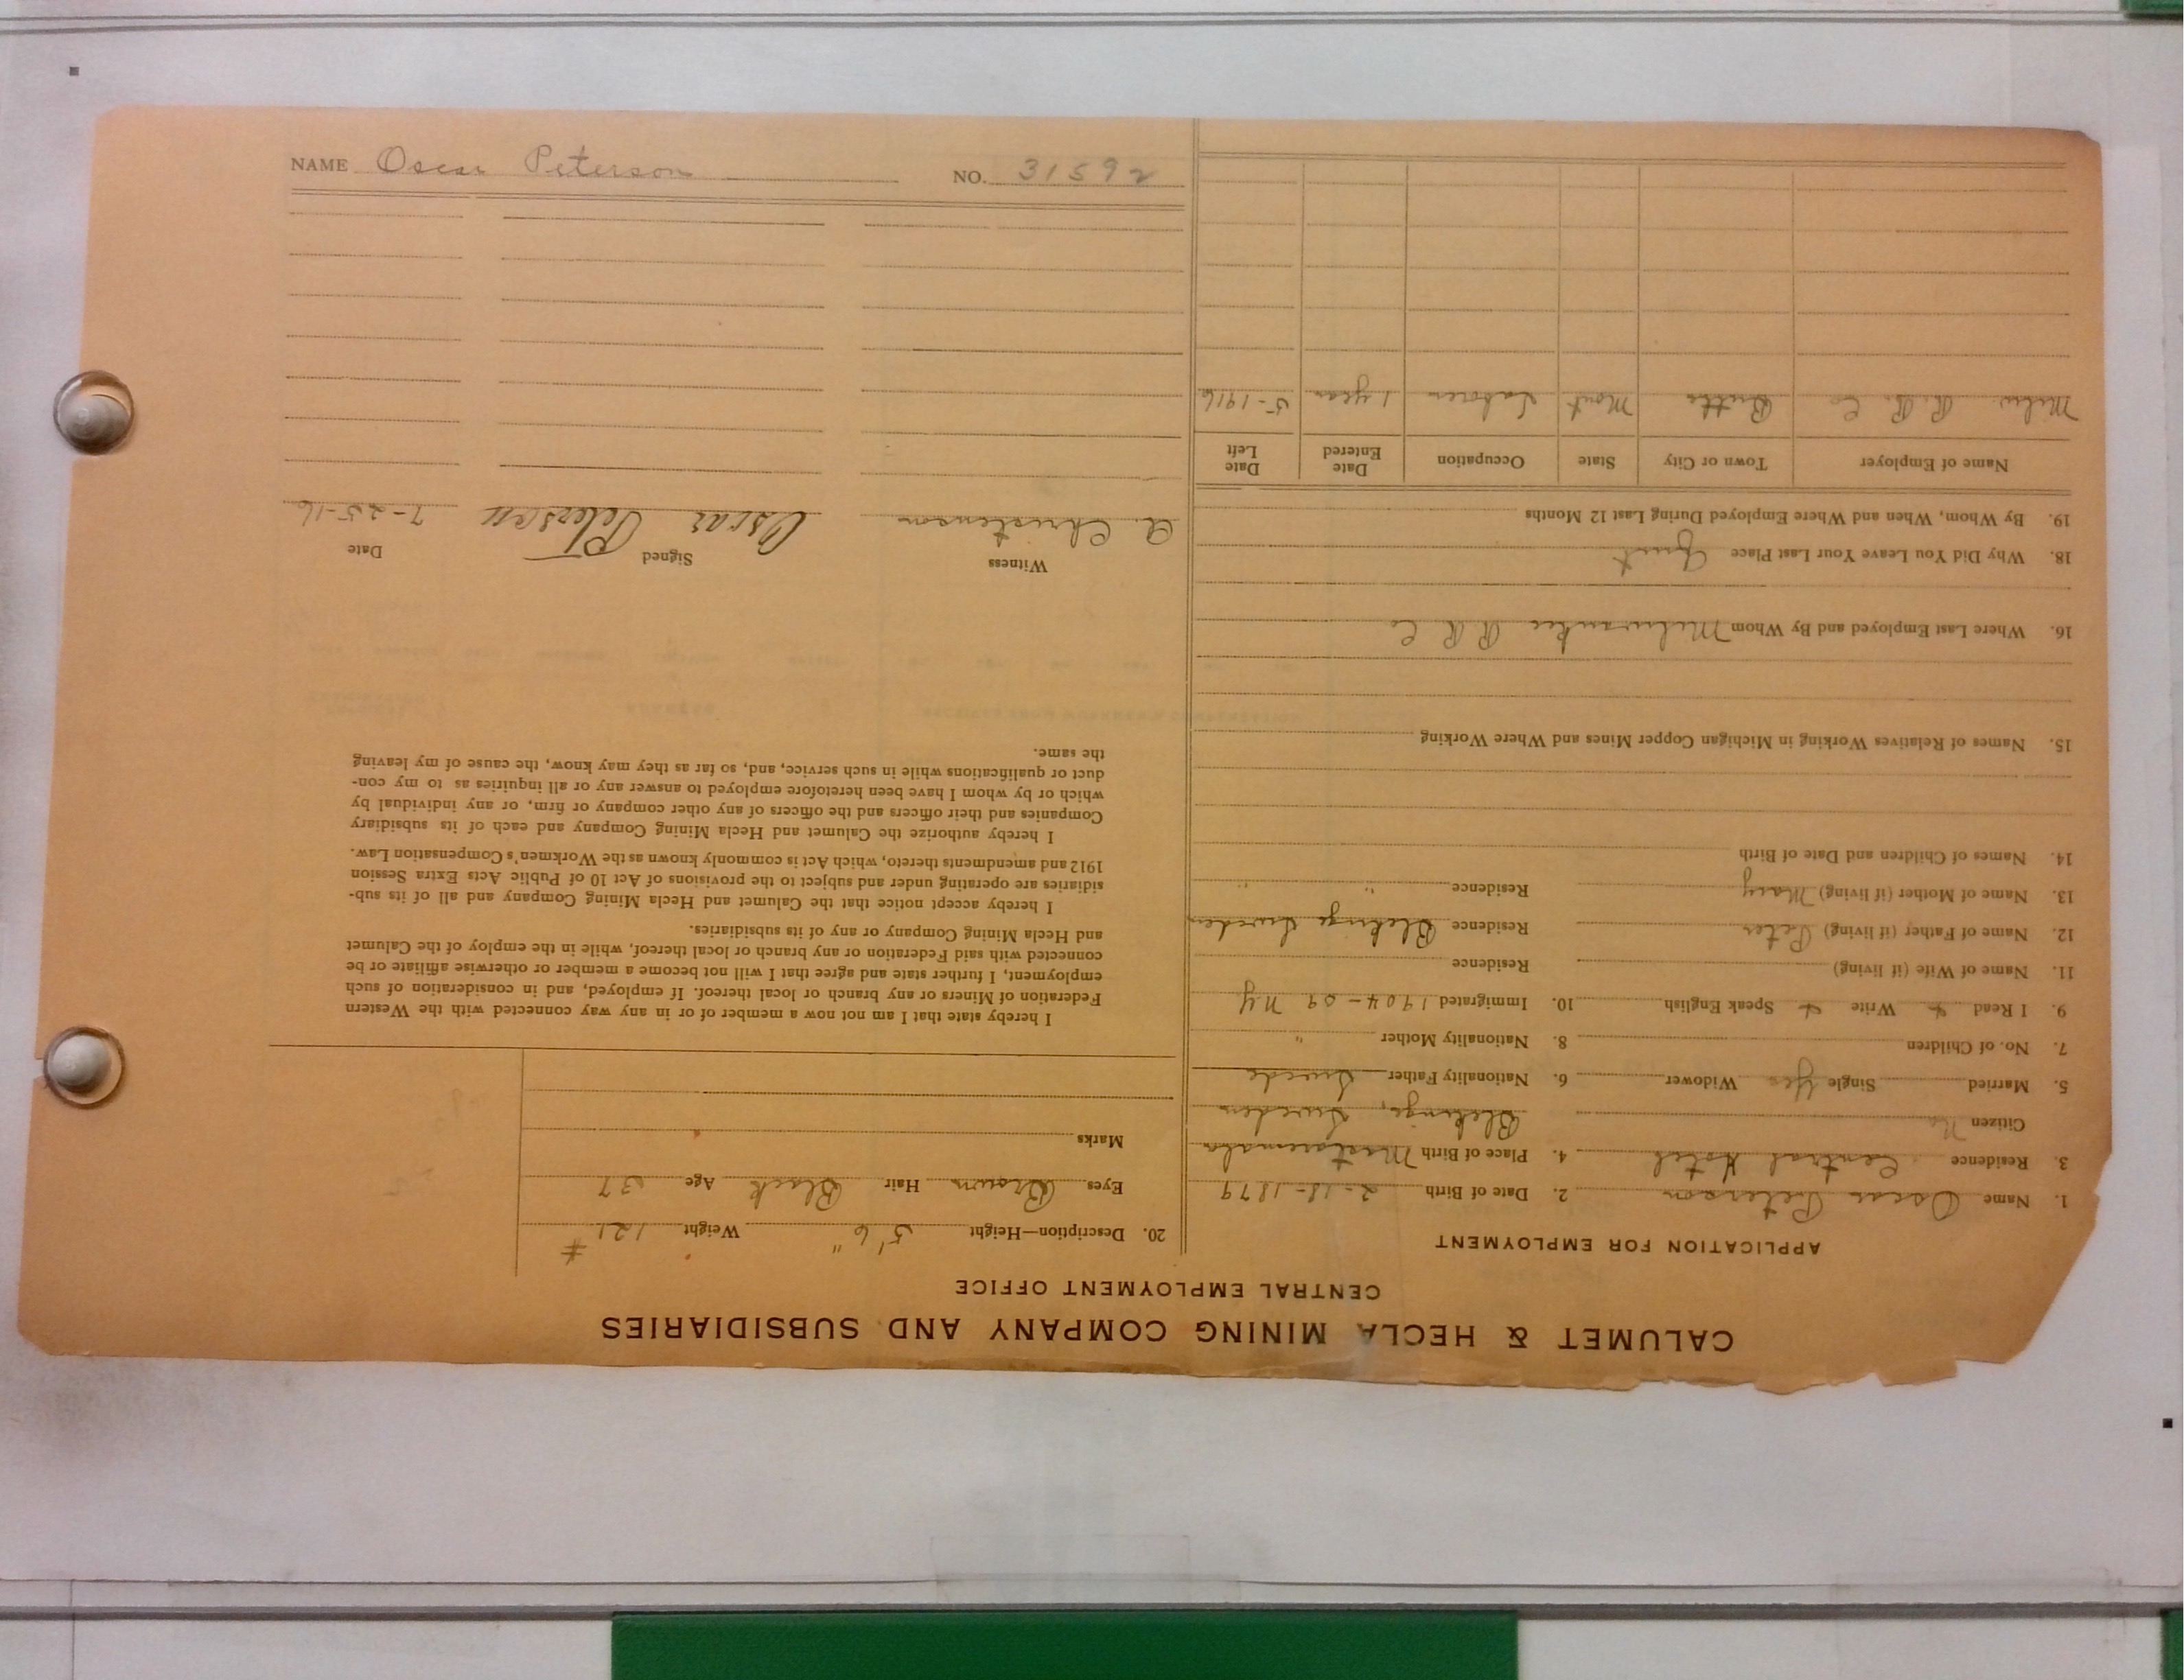 CALUMET & HECLA MINING COMPANY AND SUBSIDIARIES
CENTRAL EMPLOYMENT OFFICE
APPLICATION FOR EMPLOYMENT
1. Name Oscar Peterson 2. Date of Birth 2-18-1879
3. Residence Central Hotel 4. Place of Birth
Citizen No Blekinge, Sweden
5. Married Single Yes Widower 6. Nationality Father Swede
7. No. of Children 8. Nationality Mother "
9. I Read Write Speak English 10. Immigrated 1904-09 NY
11. Name of Wife (if living) Residence
12. Name of Father (if living) Peter Residence Blekinge Sweden
13. Name of Mother (if living) Mary Residence " "
14. Names of Children and Date of Birth
15. Names of Relatives Working in Michigan Copper Mines and Where Working
16. Where Last Employed and By Whom Milwaukee R R Co
18. Why Did You Leave Your Last Place Quit
19. By Whom, When and Where Employed During Last 12 Months
Name of Employer Town or City State Occupation Date Entered Date Left
Milw. R. R. Co Butte Mont Laborer 1 year 5-1916
20. Description—Height 5' 6" Weight 121 #
Eyes Brown Hair Black Age 37
Marks
I hereby state that I am not now a member of or in any way connected with the Western
Federation of Miners or any branch or local thereof. If employed, and in consideration of such
employment, I further state and agree that I will not become a member or otherwise affiliate or be
connected with said Federation or any branch or local thereof, while in the employ of the Calumet
and Hecla Mining Company or any of its subsidiaries.
I hereby accept notice that the Calumet and Hecla Mining Company and all of its sub-
sidiaries are operating under and subject to the provisions of Act 10 of Public Acts Extra Session
1912 and amendments thereto, which Act is commonly known as the Workmen's Compensation Law.
I hereby authorize the Calumet and Hecla Mining Company and each of its subsidiary
Companies and their officers and the officers of any other company or firm, or any individual by
which or by whom I have been heretofore employed to answer any or all inquiries as to my con-
duct or qualifications while in such service, and, so far as they may know, the cause of my leaving
the same.
Witness Signed Date
A. Christenson Oscar Peterson 7-25-16
NAME Oscar Peterson NO. 31592